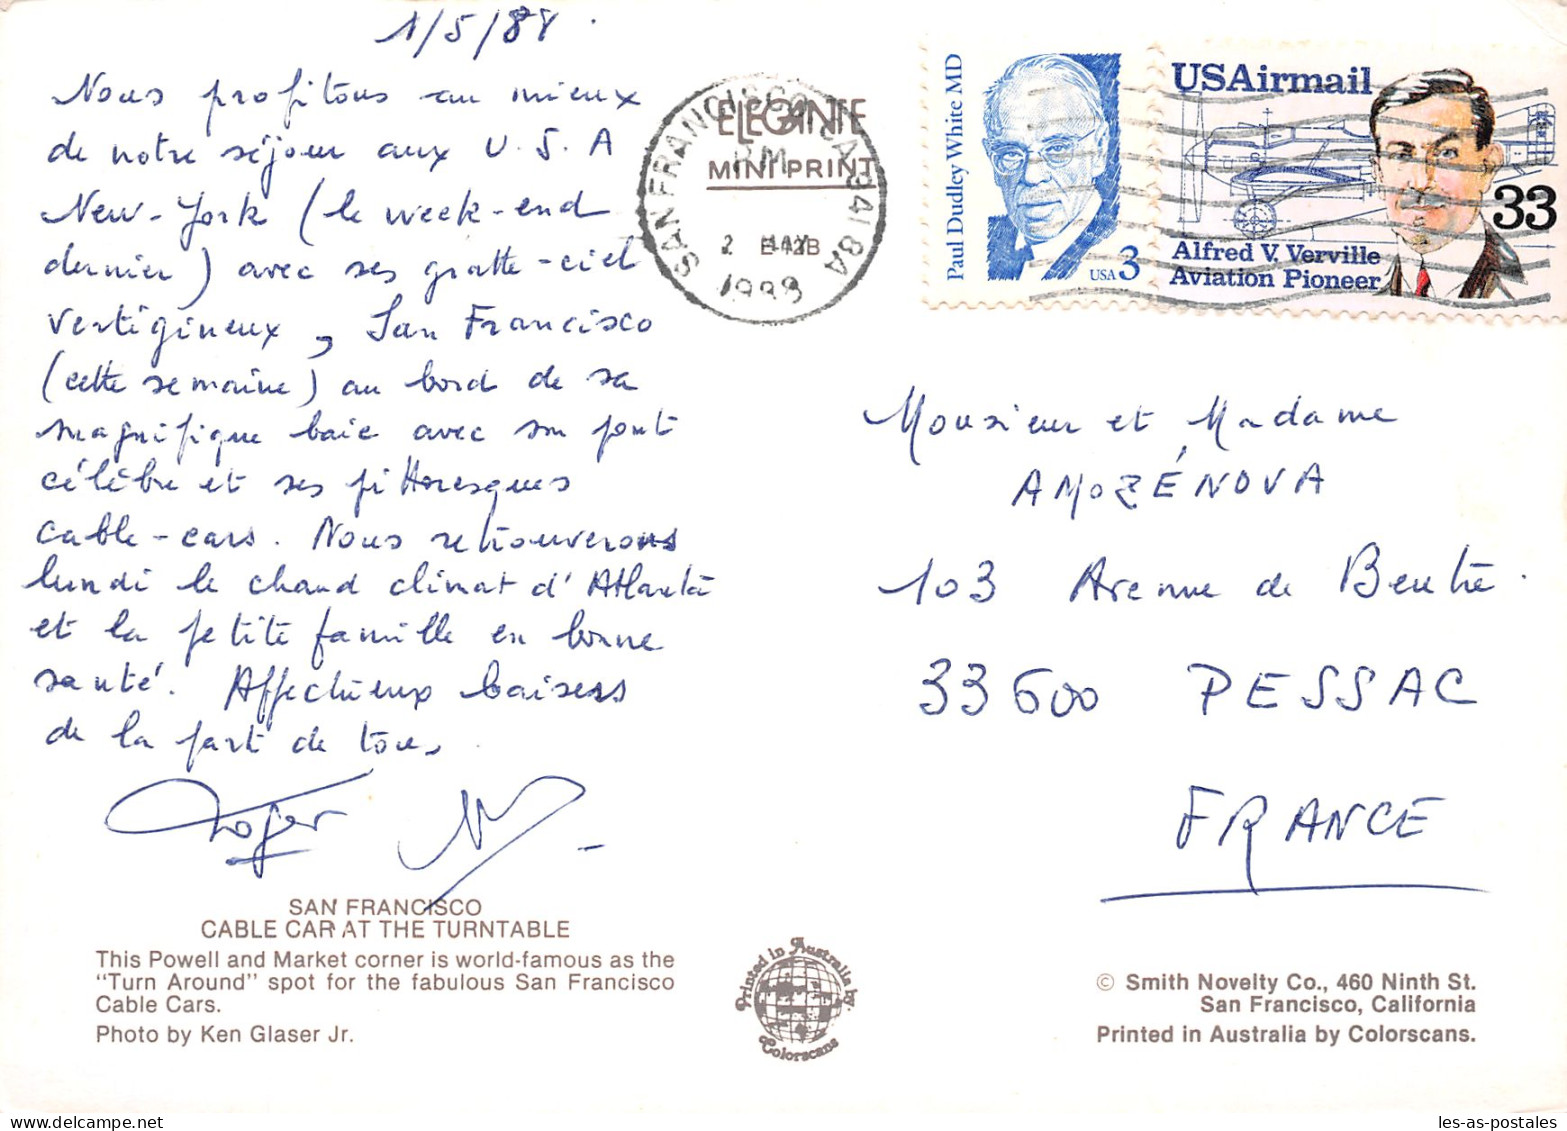 1/5/88.
Nous profitons au mieux
de notre séjour aux U.S.A
New-York (le week-end
dernier) avec ses gratte-ciel
vertigineux, San Francisco
(cette semaine) au bord de sa
magnifique baie avec son pont
célèbre et ses pittoresques
cable-cars. Nous retrouverons
lundi le chaud climat d'Atlanta
et la petite famille en bonne
santé. Affectueux baisers
de la part de tous.
Roger
SAN FRANCISCO
CABLE CAR AT THE TURNTABLE
This Powell and Market corner is world-famous as the
"Turn Around" spot for the fabulous San Francisco
Cable Cars.
Photo by Ken Glaser Jr.
ELEGANTE
MINI PRINT
SAN FRANCISCO CA 941 8A
PM
2 MAY
1988
Paul Dudley White MD
USA 3
USAirmail
33
Alfred V. Verville
Aviation Pioneer
Monsieur et Madame
AMOZÉNOVA
103 Avenue de Beutre.
33600 PESSAC
FRANCE
Printed in Australia by:
Colorscans
© Smith Novelty Co., 460 Ninth St.
San Francisco, California
Printed in Australia by Colorscans.
les-as-postales